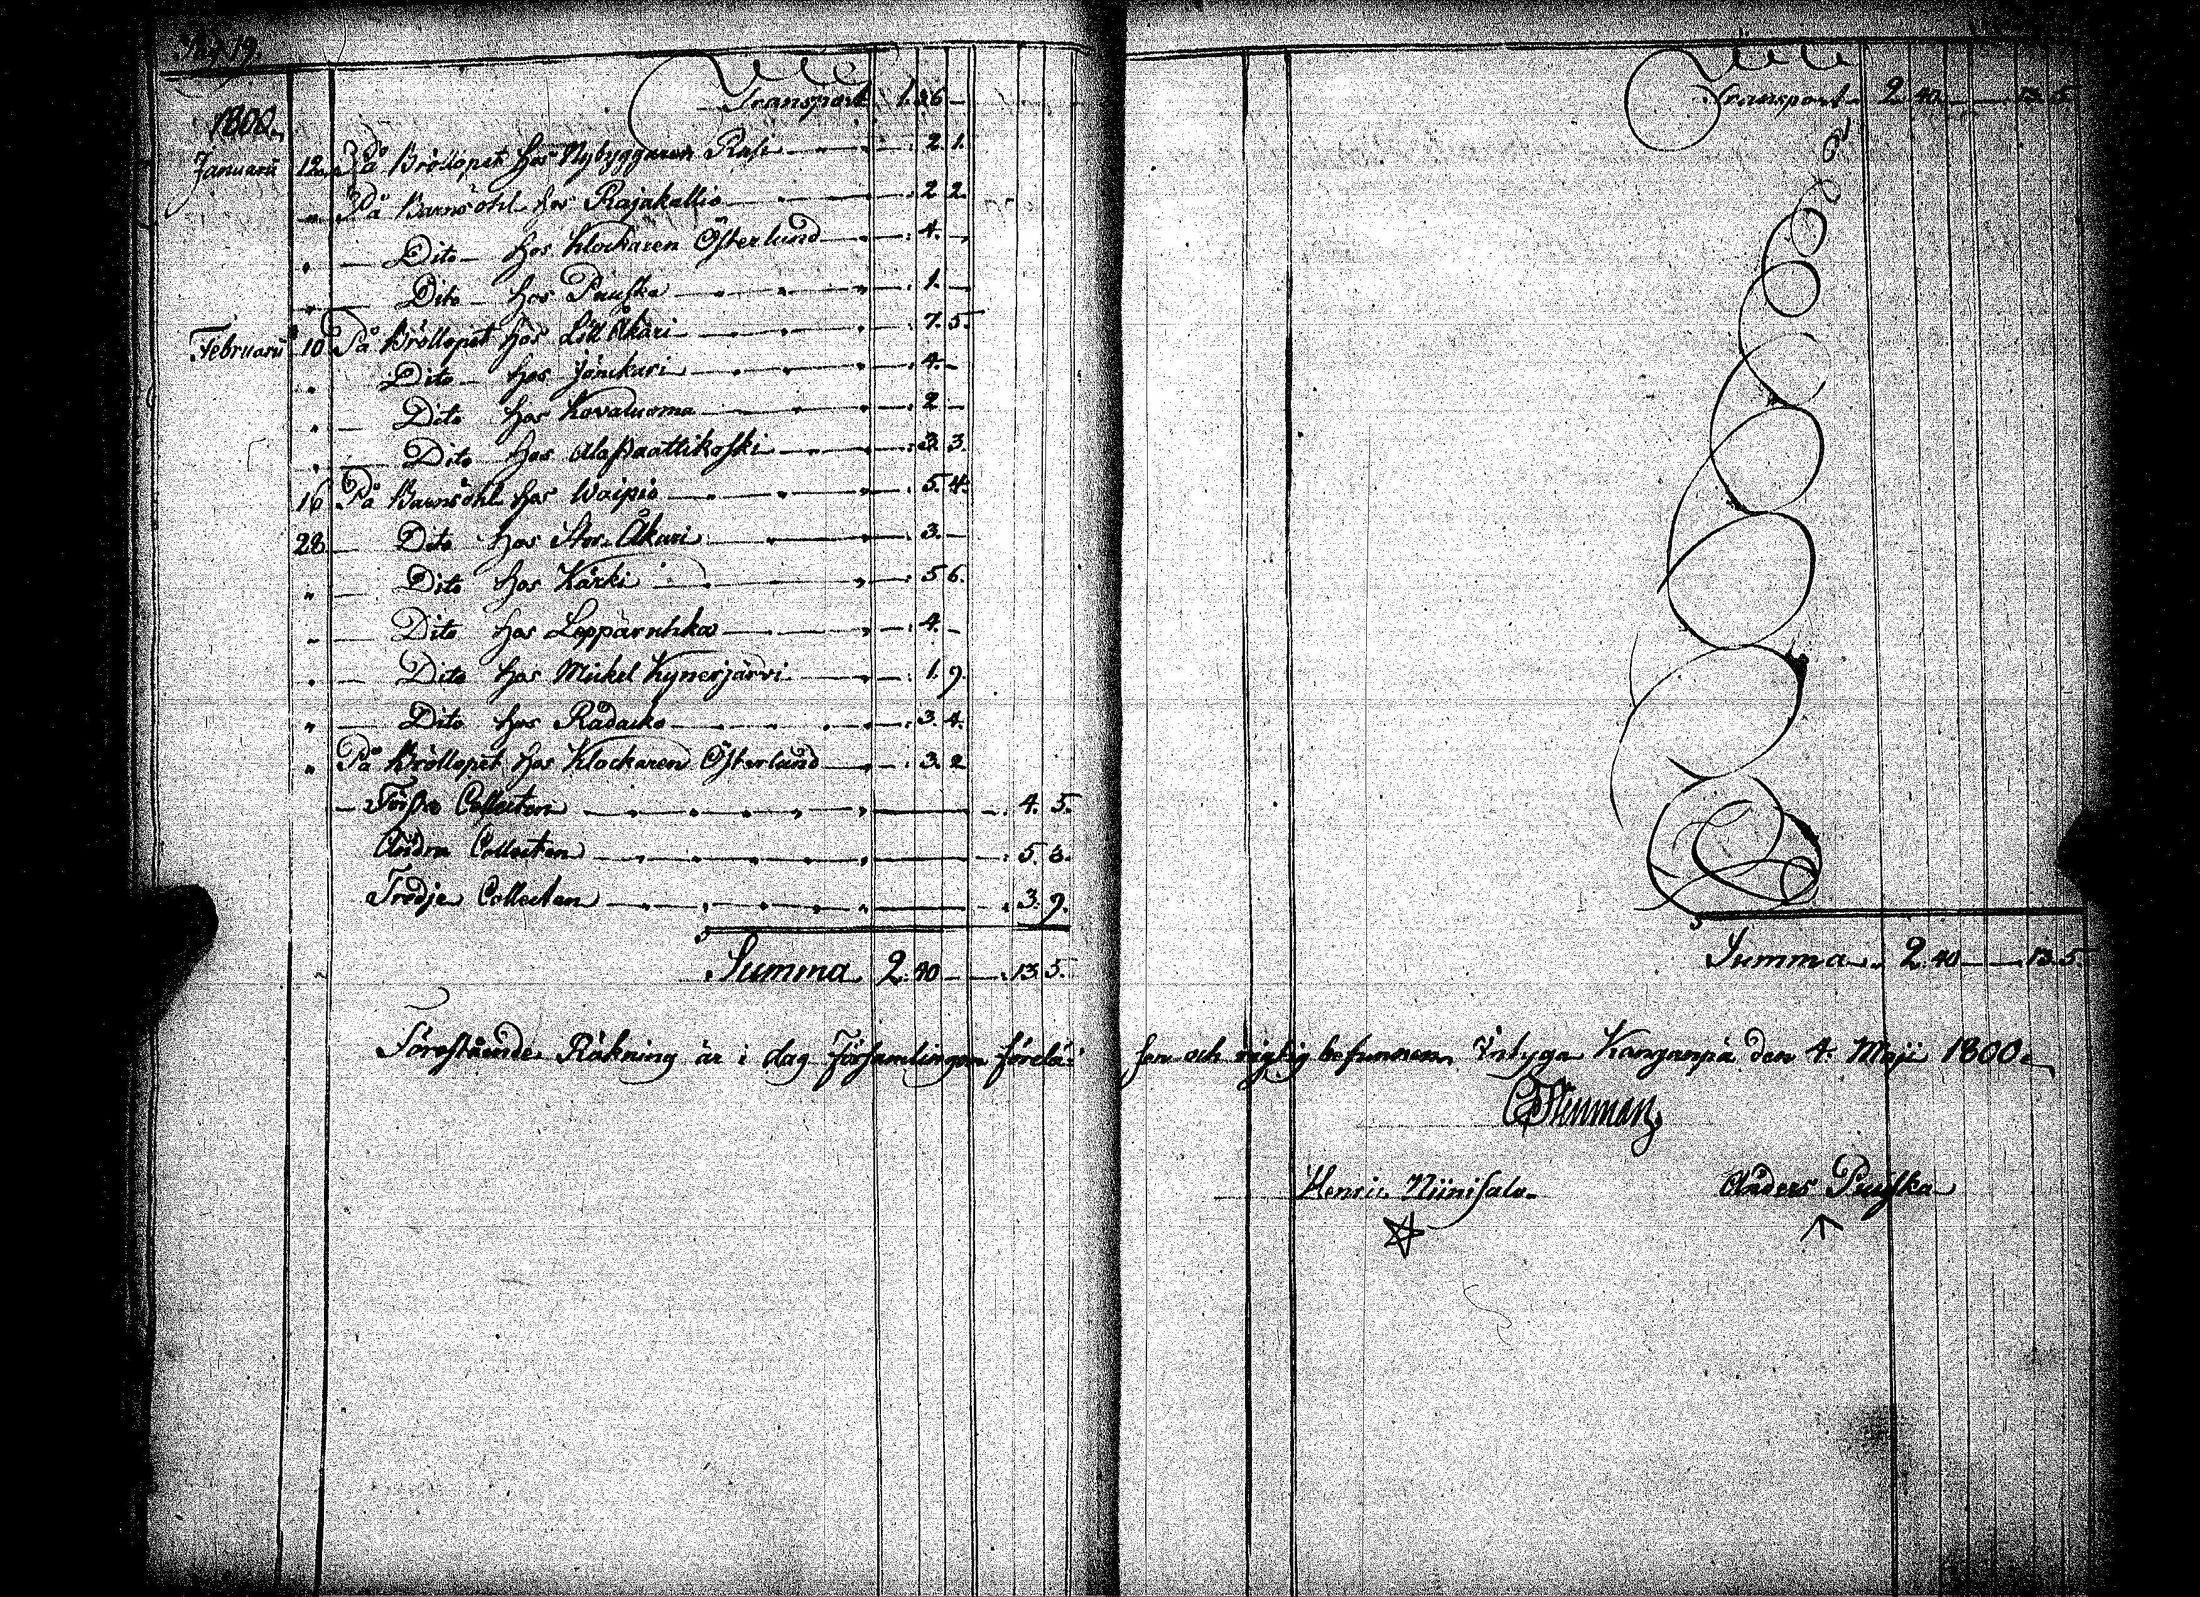 1800.
Transport 1. 36 —
Januarii 12. På Bröllopet hos Nybyggaren Rasi — 2. 1.
" På Barnsöhl hos Rajakallio — 2. 2.
" — Dito — hos Klockaren Österlund — 4. —
" — Dito — hos Puuska — 1. —
Februarii 10 På Bröllopet hos Lill Åkäri — 7. 5.
" Dito — hos Jämkäri — 4. —
" — Dito hos Kovaluoma — 2 —
" — Dito hos Alapaattikoski — 3. 3.
16 På Barnsöhl hos Waipio — 5. 4.
28 — Dito hos Stor Åkäri — 3. —
" — Dito hos Kärki — 5 6.
" — Dito hos Leppäruhka — 4. —
" — Dito hos Mickel Kynerjärvi — 1. 9.
" — Dito hos Rådacko — 3. 4.
" På Bröllopet hos Klockaren Österlund — 3. 2
— Första Collecten — 4. 5.
Andra Collecten — 5. 3.
Tredje Collecten — 3. 9.
Summa 2. 40 — 13. 5.
Förestående Räkning är i dag Församlingen förelä=
Transport 2. 40 — 13. 5.
Summa 2. 40 — 13. 5.
sen och rigtig befunnen, intyga Kanganpä den 4. Maji 1800.
Henric Niinisalo Anders Puuska